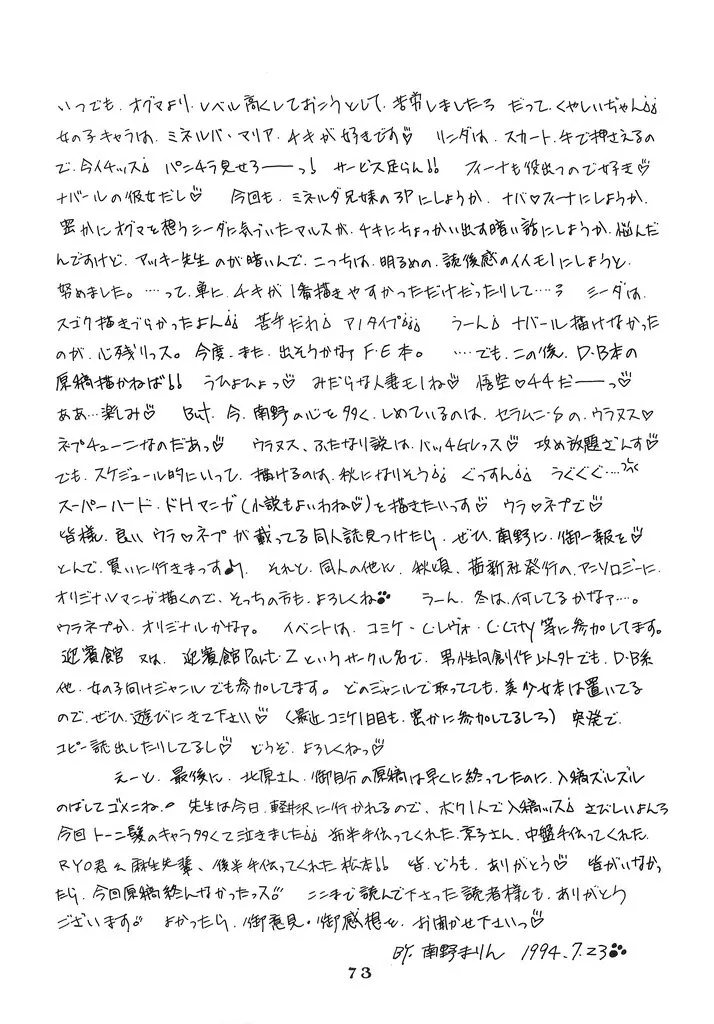 いつでも、オグマより、レベル高くしておこうとして、苦労しましたろ だって、くやしいぢゃん♩♩
女の子キャラは、ミネルバ・マリア・チキが好きです♡ リンダは、スカート、手で押さえるの
で、今イチッス♩ パンチラ見せろーーっ! サービス足らん!! フィーナも役立つので好き♡
ナバールの彼女だし♡ 今回も、ミネルバ兄妹の3Pにしようか、ナバ♡フィーナにしようか、
密かにオグマを想うシーダに気づいたマルスが、チキにちょっかい出す暗い話にしようか、悩んだ
んですけど、アッキー先生のが暗いんで、こっちは、明るめの、読後感のイイモノにしようと、
努めました。……って、単に、チキが1番描きやすかっただけだったりして……? シーダは、
スゴク描きづらかったよん♩♩ 苦手だわ♩ アノタイプ♩♩♩ うーん♩ ナバール描けなかった
のが、心残りっス。今度、また、出そうかなF・E本。 ……でも、この後、D・B本の
原稿描かねば!! うひょひょっ♡ みだらな人妻モノね♡ 悟空♡チチだーーっ♡
ああ…楽しみ♡ But、今、南野の心を多く、しめているのは、セラムン・Sの、ウラヌス♡
ネプチューンなのだあっ♡ ウラヌス、ふたなり説は、バッチGレっス♡ 攻め放題ざんす♡
でも、スケジュール的にいって、描けるのは、秋になりそう♩♩ ぐっすん♩♩ うぐぐぐ……
スーパーハード・ドHマンガ(小説もよいわね♡)を描きたいっす♡ ウラ♡ネプで♡
皆様、良い ウラ♡ネプが載ってる同人誌見つけたら、ぜひ、南野に、御一報を♡
とんで、買いに行きまっす♪ それと、同人の他に、秋頃、茜新社発行の、アンソロジーに、
オリジナルマンガ描くので、そっちの方も、よろしくね うーん、冬は、何してるかなァ……。
ウラネプか、オリジナルかなァ。 イベントは、コミケ・C・レヴォ・C・City等に参加してます。
迎賓館 又は、迎賓館Part・Zというサークル名で、男性向創作以外でも、D・B系
他、女の子向けジャンルでも参加してます。どのジャンルで取ってても、美少女本は置いてる
ので、ぜひ、遊びにきて下さい♡ (最近コミケ1日目も、密かに参加してるしろ) 突発で、
コピー誌出したりしてるし♡ どうぞ、よろしくねっ♡
えーと、最後に、北原さん、御自分の原稿は早くに終ってたのに、入稿ズルズル
のばしてゴメンね。 先生は今日、軽井沢に行かれるので、ボク1人で入稿ッス♩ さびしいよんろ
今回トーン髪のキャラ多くて泣きました♩♩ 前半手伝ってくれた、京子さん、中盤手伝ってくれた、
RYO君&麻生先輩、後半手伝ってくれた松本!! 皆、どうも、ありがとう♡ 皆がいなかっ
たら、今回原稿終んなかったっス!! ここまで読んで下さった読者様も、ありがとう
ございます!! よかったら、御意見・御感想を、お聞かせ下さいっ♡
BY. 南野まりん 1994.7.23
73